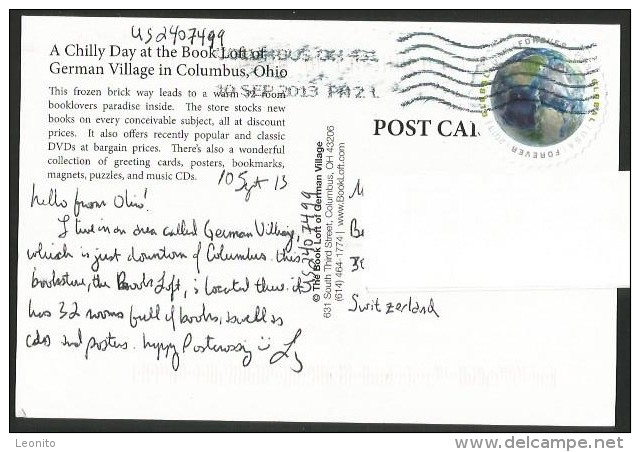 US2407499
A Chilly Day at the Book Loft of
German Village in Columbus, Ohio
This frozen brick way leads to a warm 32 room
booklovers paradise inside. The store stocks new
books on every conceivable subject, all at discount
prices. It also offers recently popular and classic
DVDs at bargain prices. There's also a wonderful
collection of greeting cards, posters, bookmarks,
magnets, puzzles, and music CDs.
10 Sept 13
hello from Ohio!
I live in an area called German Village,
which is just downtown of Columbus. this
bookstore, the Book Loft, is located there. it
has 32 rooms full of books, as well as
cds and posters. happy Postcrossing
US2407499
© The Book Loft of German Village
631 South Third Street, Columbus, OH 43206
(614) 464-1774 | www.BookLoft.com
COLUMBUS OH 432
10 SEP 2013 PM 2 L
POST CA
FOREVER
GLOBAL
USA
FOREVER
2013
M
Be
3
Switzerland
Leonito
www.delcampe.net